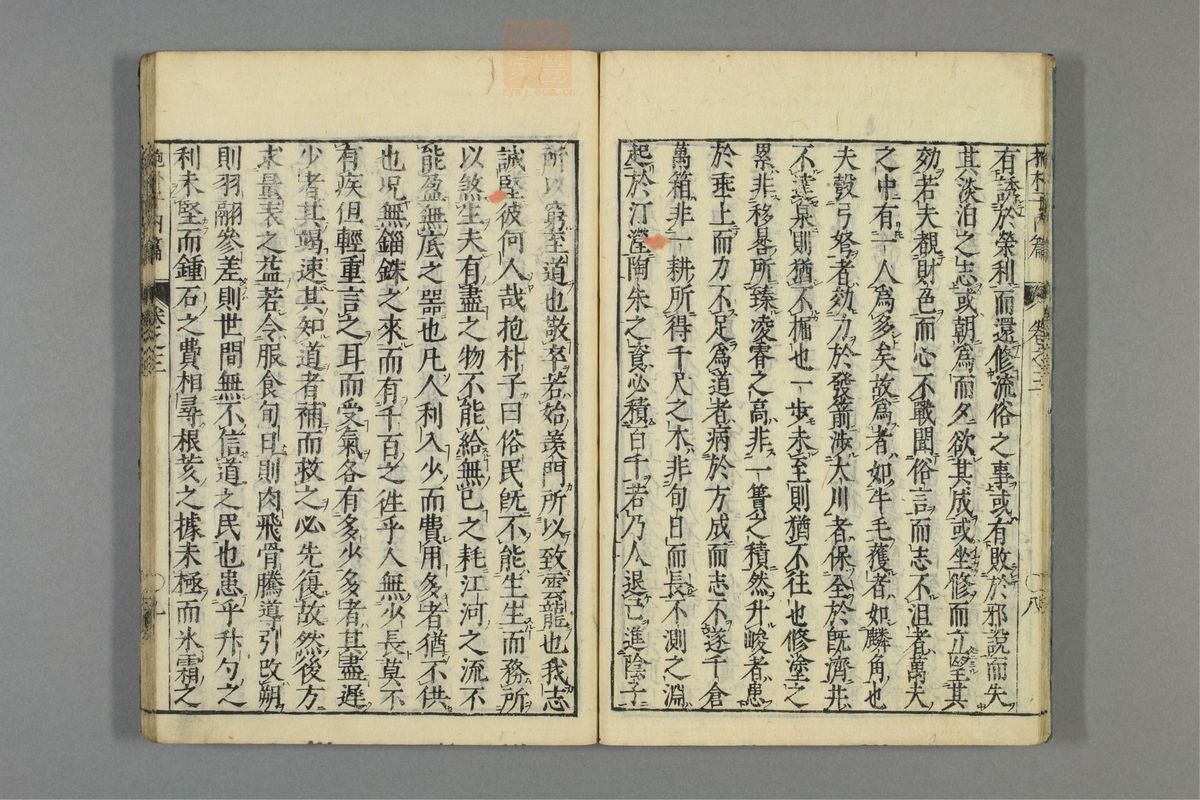 抱朴子内篇 卷之三 〇八
有誘於榮利而還修流俗之事或有敗於邪說而失
其淡泊之志或朝爲而夕欲其成或坐修而立望其
効若夫覩財色而心不戰聞俗言而志不沮者萬夫
之中有一人爲多矣故爲者如牛毛獲者如麟角也
夫彀弓弩者効力於發箭涉大川者保全於旣濟井
不達泉則猶不掘也一步未至則猶不往也修塗之
累非移晷所臻凌霄之高非一簣之積然升峻者患
於垂上而力不足爲道者病於方成而志不遂千倉
萬箱非一耕所得千尺之木非旬日而長不測之淵
起於汀瀅陶朱之資必積百千若乃人退己進陰子
所以窮至道也敬卒若始羨門所以致雲龍也我志
誠堅彼何人哉抱朴子曰俗民旣不能生生而務所
以煞生夫有盡之物不能給無已之耗江河之流不
能盈無底之器也凡人利入少而費用多者猶不供
也况無錙銖之來而有千百之徃乎人無少長莫不
有疾但輕重言之耳而受氣各有多少多者其盡遲
少者其竭速其知道者補而救之必先復故然後方
求量表之益若令服食旬日則肉飛骨騰導引改朔
則羽翮參差則世間無不信道之民也患乎升勺之
利未堅而鍾石之費相尋根荄之據未極而氷霜之
抱朴子内篇 卷之三
zysj.com.cn